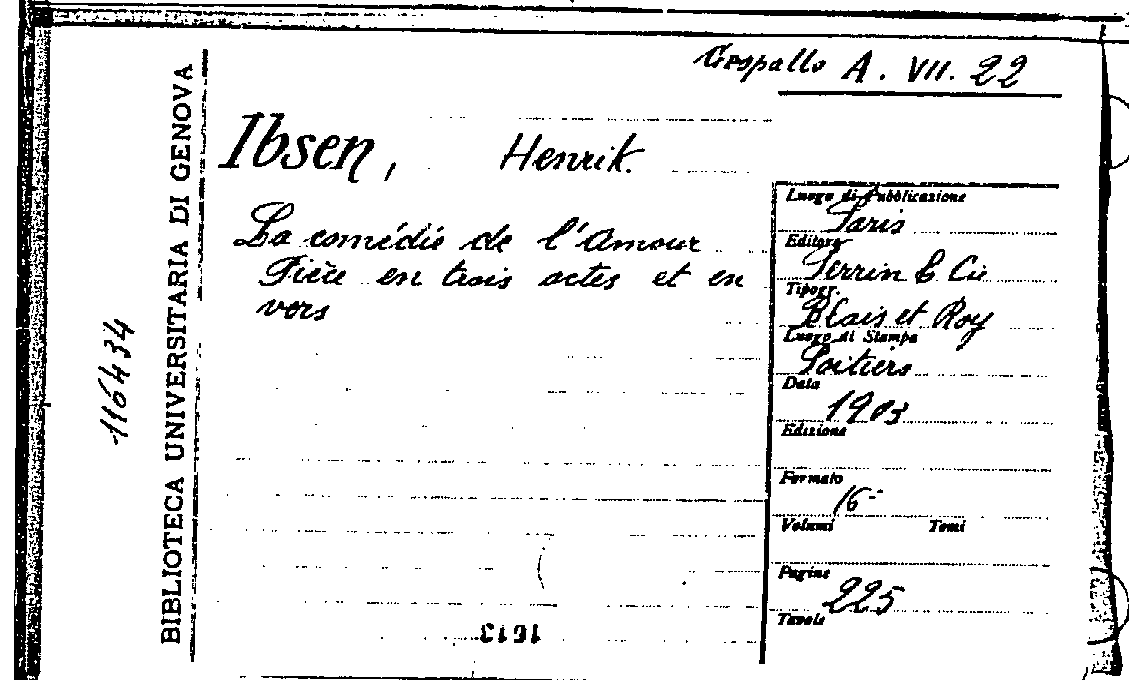 Gropallo A. VII. 22
Ibsen, Henrik.
La comédie de l'Amour
Pièce en trois actes et en
vers
Luogo di Pubblicazione
Paris
Editore
Perrin & Cie
Tipogr.
Blais et Roy
Luogo di Stampa
Poitiers
Data
1903
Edizione
Formato
16-
Volumi Tomi
Pagine
225
Tavole
BIBLIOTECA UNIVERSITARIA DI GENOVA
116434